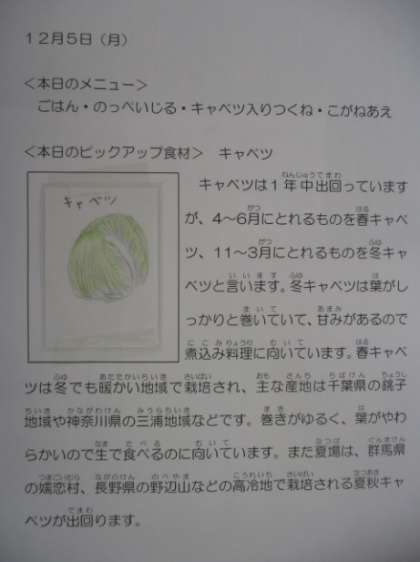 12月5日（月）
＜本日のメニュー＞
ごはん・のっぺいじる・キャベツ入りつくね・こがねあえ
＜本日のピックアップ食材＞　キャベツ
キャベツ
キャベツは1年中出回っています
が、4～6月にとれるものを春キャベ
ツ、11～3月にとれるものを冬キャ
ベツと言います。冬キャベツは葉がし
っかりと巻いていて、甘みがあるので
煮込み料理に向いています。春キャベ
ツは冬でも暖かい地域で栽培され、主な産地は千葉県の銚子
地域や神奈川県の三浦地域などです。巻きがゆるく、葉がやわ
らかいので生で食べるのに向いています。また夏場は、群馬県
の嬬恋村、長野県の野辺山などの高冷地で栽培される夏秋キャ
ベツが出回ります。